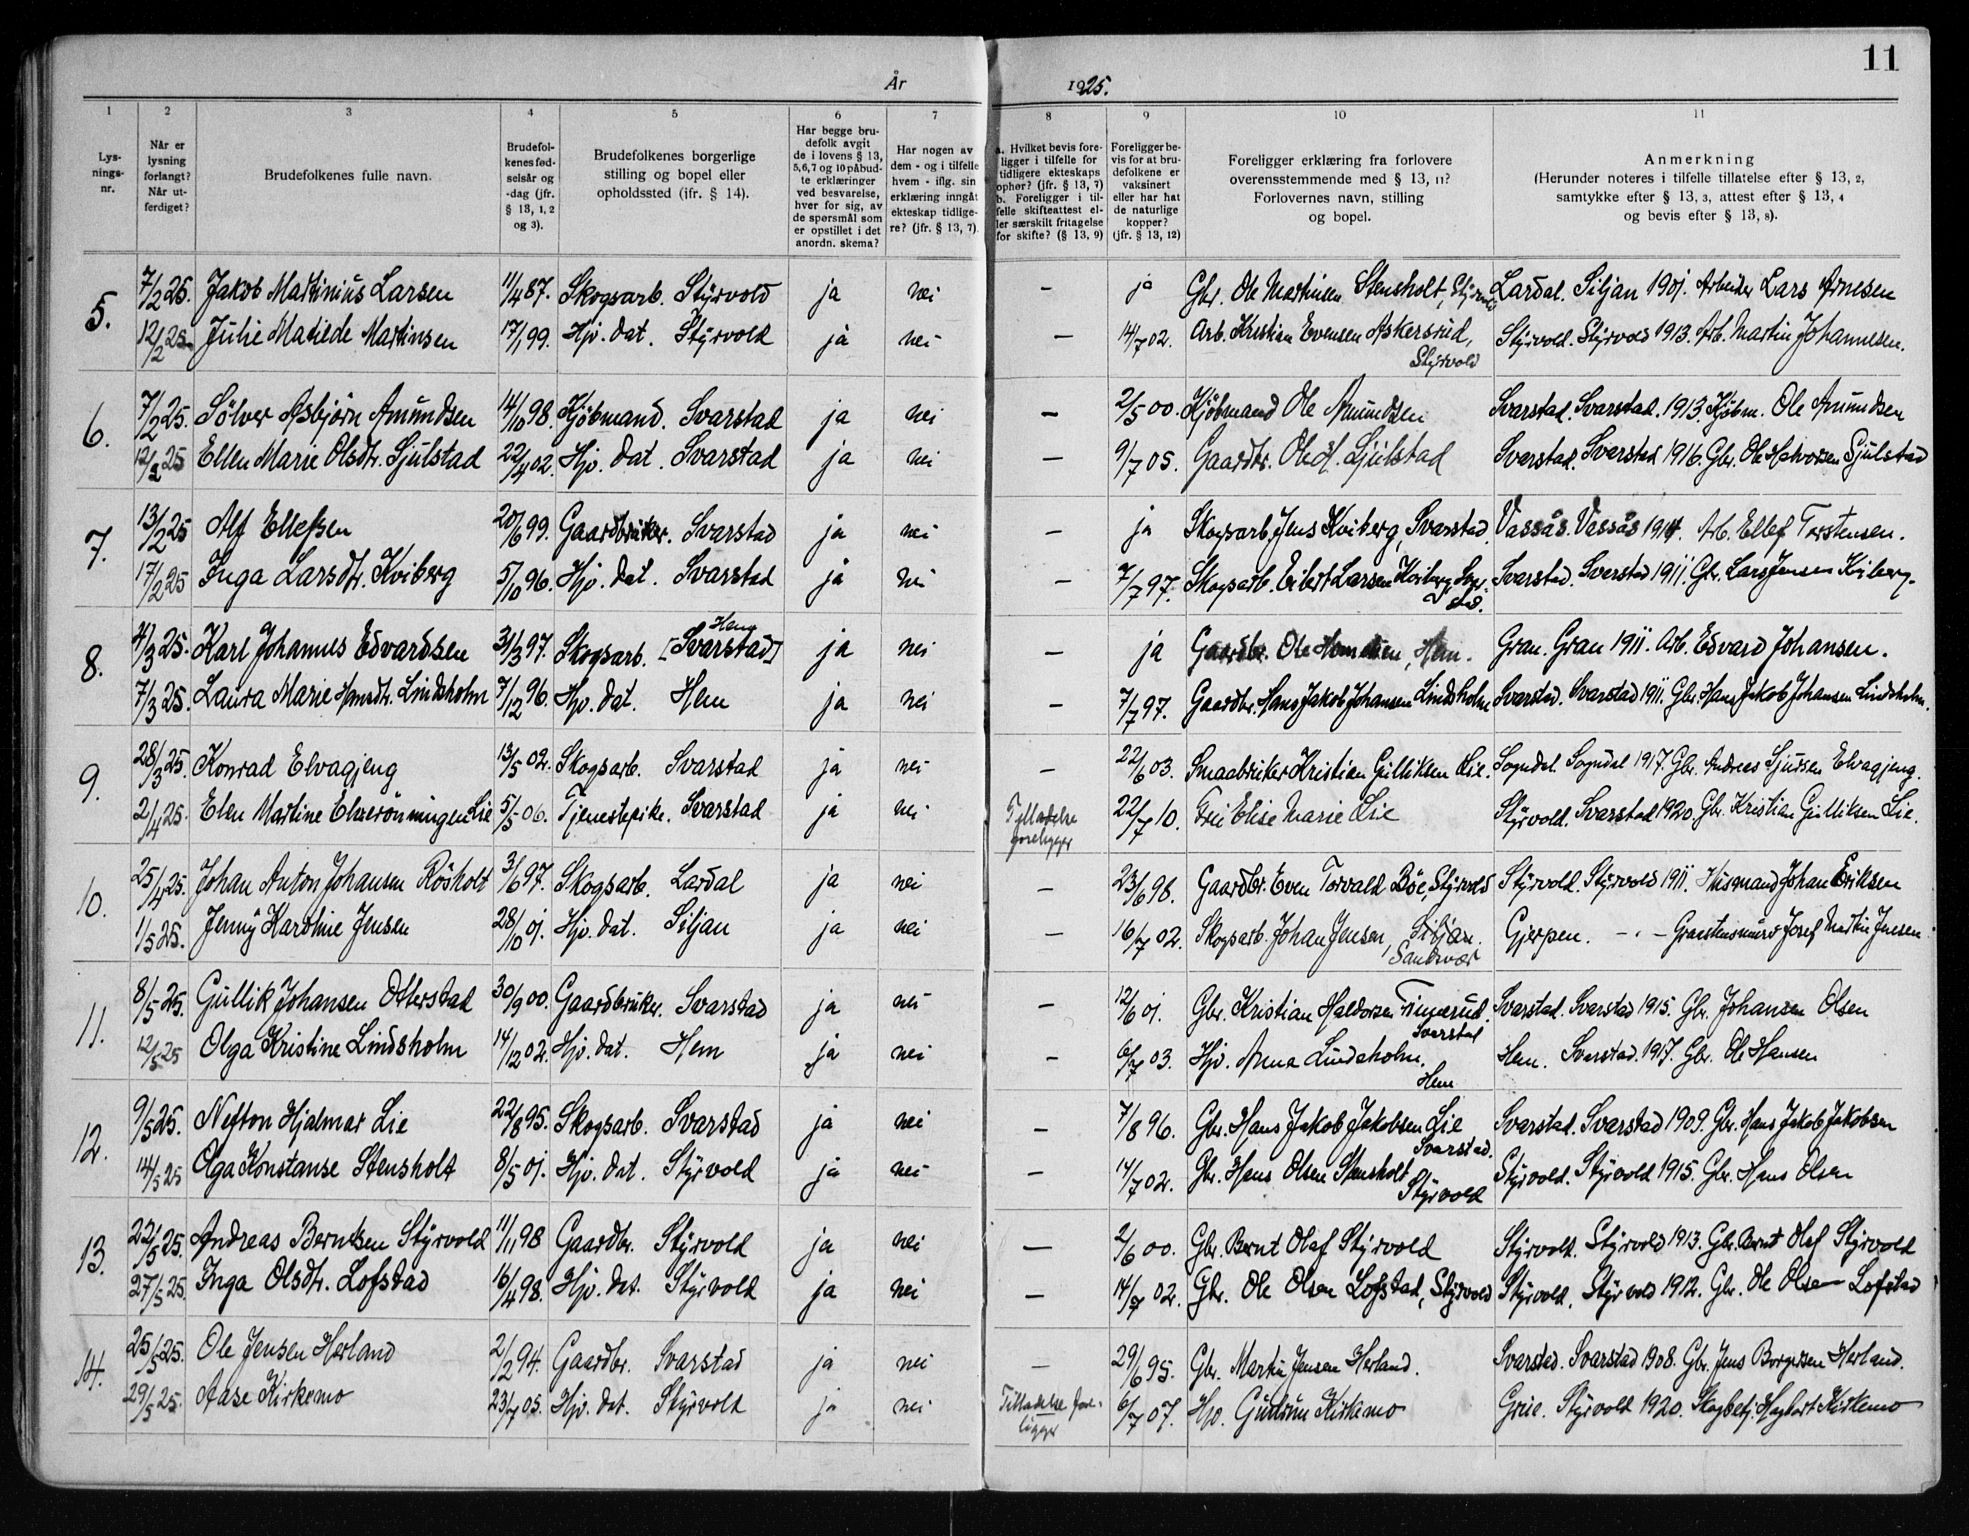 11
År 1925.
1 2 3 4 5 6 7 8 9 10 11
Lysnings-nr.
Når er lysning forlangt? Når utferdiget?
Brudefolkenes fulle navn.
Brudefolkenes fødselsår og -dag (jfr. § 13, 1, 2 og 3).
Brudefolkenes borgerlige stilling og bopel eller opholdssted (jfr. § 14).
Har begge brudefolk avgit de i lovens § 13, 5,6,7 og 10 påbudte erklæringer ved besvarelse, hver for sig, av de spørsmål som er opstillet i det anordn. skema?
Har nogen av dem - og i tilfelle hvem - iflg. sin erklæring inngåt ekteskap tidligere? (jfr. § 13, 7).
a. Hvilket bevis foreligger i tilfelle for tidligere ekteskaps ophør? (jfr. § 13, 7) b. Foreligger i tilfelle skifteattest eller særskilt fritagelse for skifte? (§ 13, 9)
Foreligger bevis for at brudefolkene er vaksinert eller har hat de naturlige kopper? (jfr. § 13, 12)
Foreligger erklæring fra forlovere overensstemmende med § 13, 11? Forlovernes navn, stilling og bopel.
Anmerkning (Herunder noteres i tilfelle tillatelse efter § 13, 2, samtykke efter § 13, 3, attest efter § 13, 4 og bevis efter § 13, 8).
5. 7/2 25. Jakob Martinius Larsen 11/4 87. Skogsarb. Styrvold ja nei — ja Gbr. Ole Martinsen Stensholt, Styrvold Lardal. Siljan 1901. Arbeider Lars Arnesen
12/2 25 Julie Matilde Martinsen 17/1 99. Hjv. dat. Styrvold ja nei — 14/7 02. Arb. Kristian Evensen Askersrud, Styrvold Styrvold. Styrvold 1913. Arb. Martin Johannesen.
6. 7/2 25. Sölver Asbjörn Amundsen 14/10 98. Kjöbmand. Svarstad ja nei — 2/5 00. Kjöbmand Ole Amundsen Svarstad. Svarstad. 1913. Kjöbm. Ole Amundsen
12/2 25 Ellen Marie Olsdtr. Sjulstad 22/4 02. Hjv. dat. Svarstad ja nei — 9/7 05. Gaardbr. Ole H. Sjulstad Svarstad. Svarstad 1916. Gbr. Ole Halvorsen Sjulstad
7. 13/2 25 Alf Ellefsen 20/6 99. Gaardbruker. Svarstad ja nei — ja Skogsarb. Jens Kviberg, Svarstad. Vassås. Vassås 1914. Arb. Ellef Torstensen.
17/2 25 Inga Larsdtr. Kviberg 5/10 96. Hjv. dat. Svarstad ja nei — 7/7 97. Skogsarb. Eibert Larsen Kviberg, Svarstad. Svarstad. Svarstad 1911. Gbr. Lars Jensen Kviberg.
8. 4/3 25. Karl Johannes Edvardsen 31/3 97. Skogsarb. [Svarstad] Hem ja nei — ja Gaardbr. Ole Hem. Gran. Gran 1911. Arb. Edvard Johansen.
7/3 25. Laura Marie Hansdtr. Lindsholm 7/12 96. Hjv. dat. Hem ja nei — 7/7 97. Gaardbr. Hans Jakob Johansen Lindsholm Svarstad. Svarstad 1911. Gbr. Hans Jakob Johansen Lindsholm.
9. 28/3 25. Konrad Elvagjeng 13/5 02. Skogsarb. Svarstad ja nei — 22/6 03. Smaabruker Kristian Gulliksen Lie. Sogndal. Sogndal 1917. Gbr. Andreas Sjursen Elvagjeng.
2/4 25. Elen Martine Elverönningen Lie 5/5 06. Tjenestepike. Svarstad ja nei Tilladelse foreligger 22/7 10. Fru Elise Marie Lie Styrvold. Svarstad 1920. Gbr. Kristian Gulliksen Lie.
10. 25/4 25. Johan Anton Johansen Rösholt 3/6 97. Skogsarb. Lardal ja nei — 23/6 98. Gaardbr. Even Torvald Böe, Styrvold Styrvold. Styrvold 1911. Husmand Johan Eriksen
1/5 25. Jenny Karoline Jensen 28/10 01. Hjv. dat. Siljan ja nei — 16/7 02. Skogsarb. Johan Jensen, Siljan. Sandsvær Gjerpen. -"- Graastensmurer Josef Martin Jensen
11. 8/5 25. Gullik Johansen Otterstad 30/9 00. Gaardbruker. Svarstad ja nei — 12/6 01. Gbr. Kristian Haldorsen Finnerud. Svarstad Svarstad. Svarstad 1915. Gbr. Johansen Olsen
12/5 25 Olga Kristine Lindsholm 14/12 02. Hjv. dat. Hem ja nei — 6/7 03. Hjv. Anna Lindsholm. Hem Hem. Svarstad. 1917. Gbr. Ole Hansen
12. 9/5 25. Nefton Hjalmar Lie 22/8 95. Skogsarb. Svarstad ja nei — 7/8 96. Gbr. Hans Jakob Jakobsen Lie Svarstad. Svarstad. Svarstad 1909. Gbr. Hans Jakob Jakobsen
14/5 25 Olga Konstanse Stensholt 8/5 01. Hjv. dat. Styrvold ja nei — 14/7 02. Gbr. Hans Olsen Stensholt Styrvold Styrvold. Styrvold 1915. Gbr. Hans Olsen
13. 22/5 25. Andreas Berntsen Styrvold 11/11 98 Gaardbr. Styrvold ja nei — 2/6 00. Gbr. Bernt Olaf Styrvold Styrvold. Styrvold 1913. Gbr. Bernt Olaf Styrvold
27/5 25. Inga Olsdtr. Lofstad 16/4 98. Hjv. dat. Styrvold ja nei — 14/7 02. Gbr. Ole Olsen Lofstad, Styrvold Styrvold. Styrvold 1912. Gbr. Ole Olsen Lofstad
14. 25/5 25. Ole Jensen Herland 2/2 94. Gaardbr. Svarstad ja nei — 29/6 95. Gbr. Martin Jensen Herland. Svarstad. Svarstad 1908. Gbr. Jens Borgersen Herland.
29/5 25. Aase Kirkemo 23/7 05. Hjv. dat. Styrvold ja nei Tilladelse foreligger 6/7 07. Hjv. Gudrun Kirkemo Grue. Styrvold 1920. Skogbetj. Hagbart Kirkemo